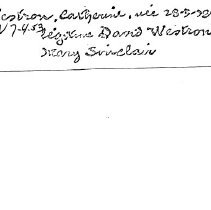 estron, Catherine, née 28-5-32
7-4.53 légitime David Westron
Mary Sinclair